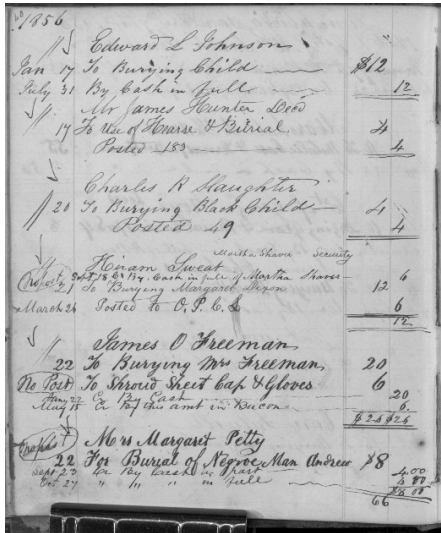 1856
" Edward L Johnson
Jan 17 To Burying Child $12
July 31 By Cash in full 12
" Mr James Hunter Decd
17 To Use of Hearse & Burial 4
Posted 183 4
Charles R Slaughter
" 20 To Burying Black Child 4
Posted 49 4
Martha Shaver Security
" Hiram Sweat
No Post Sept 18 61 By Cash in full of Martha Shaver 6
21 To Burying Margaret 12
March 26 Posted to O, P, C, L 6
12
" James O Freeman
22 To Burying Mrs Freeman 20
No Post To Shroud Sheet Cap & Gloves 6
Jany 22 Cr By Cash 20
May 15 Cr By this amt in Bacon 6
$26 $26
Mrs Margaret Petty
22 For Burial of Negroe Man Andrew $8
Sept 23 Cr By Cash in part 4.00
Oct 27 " " " in full 4 00
$8 00
66